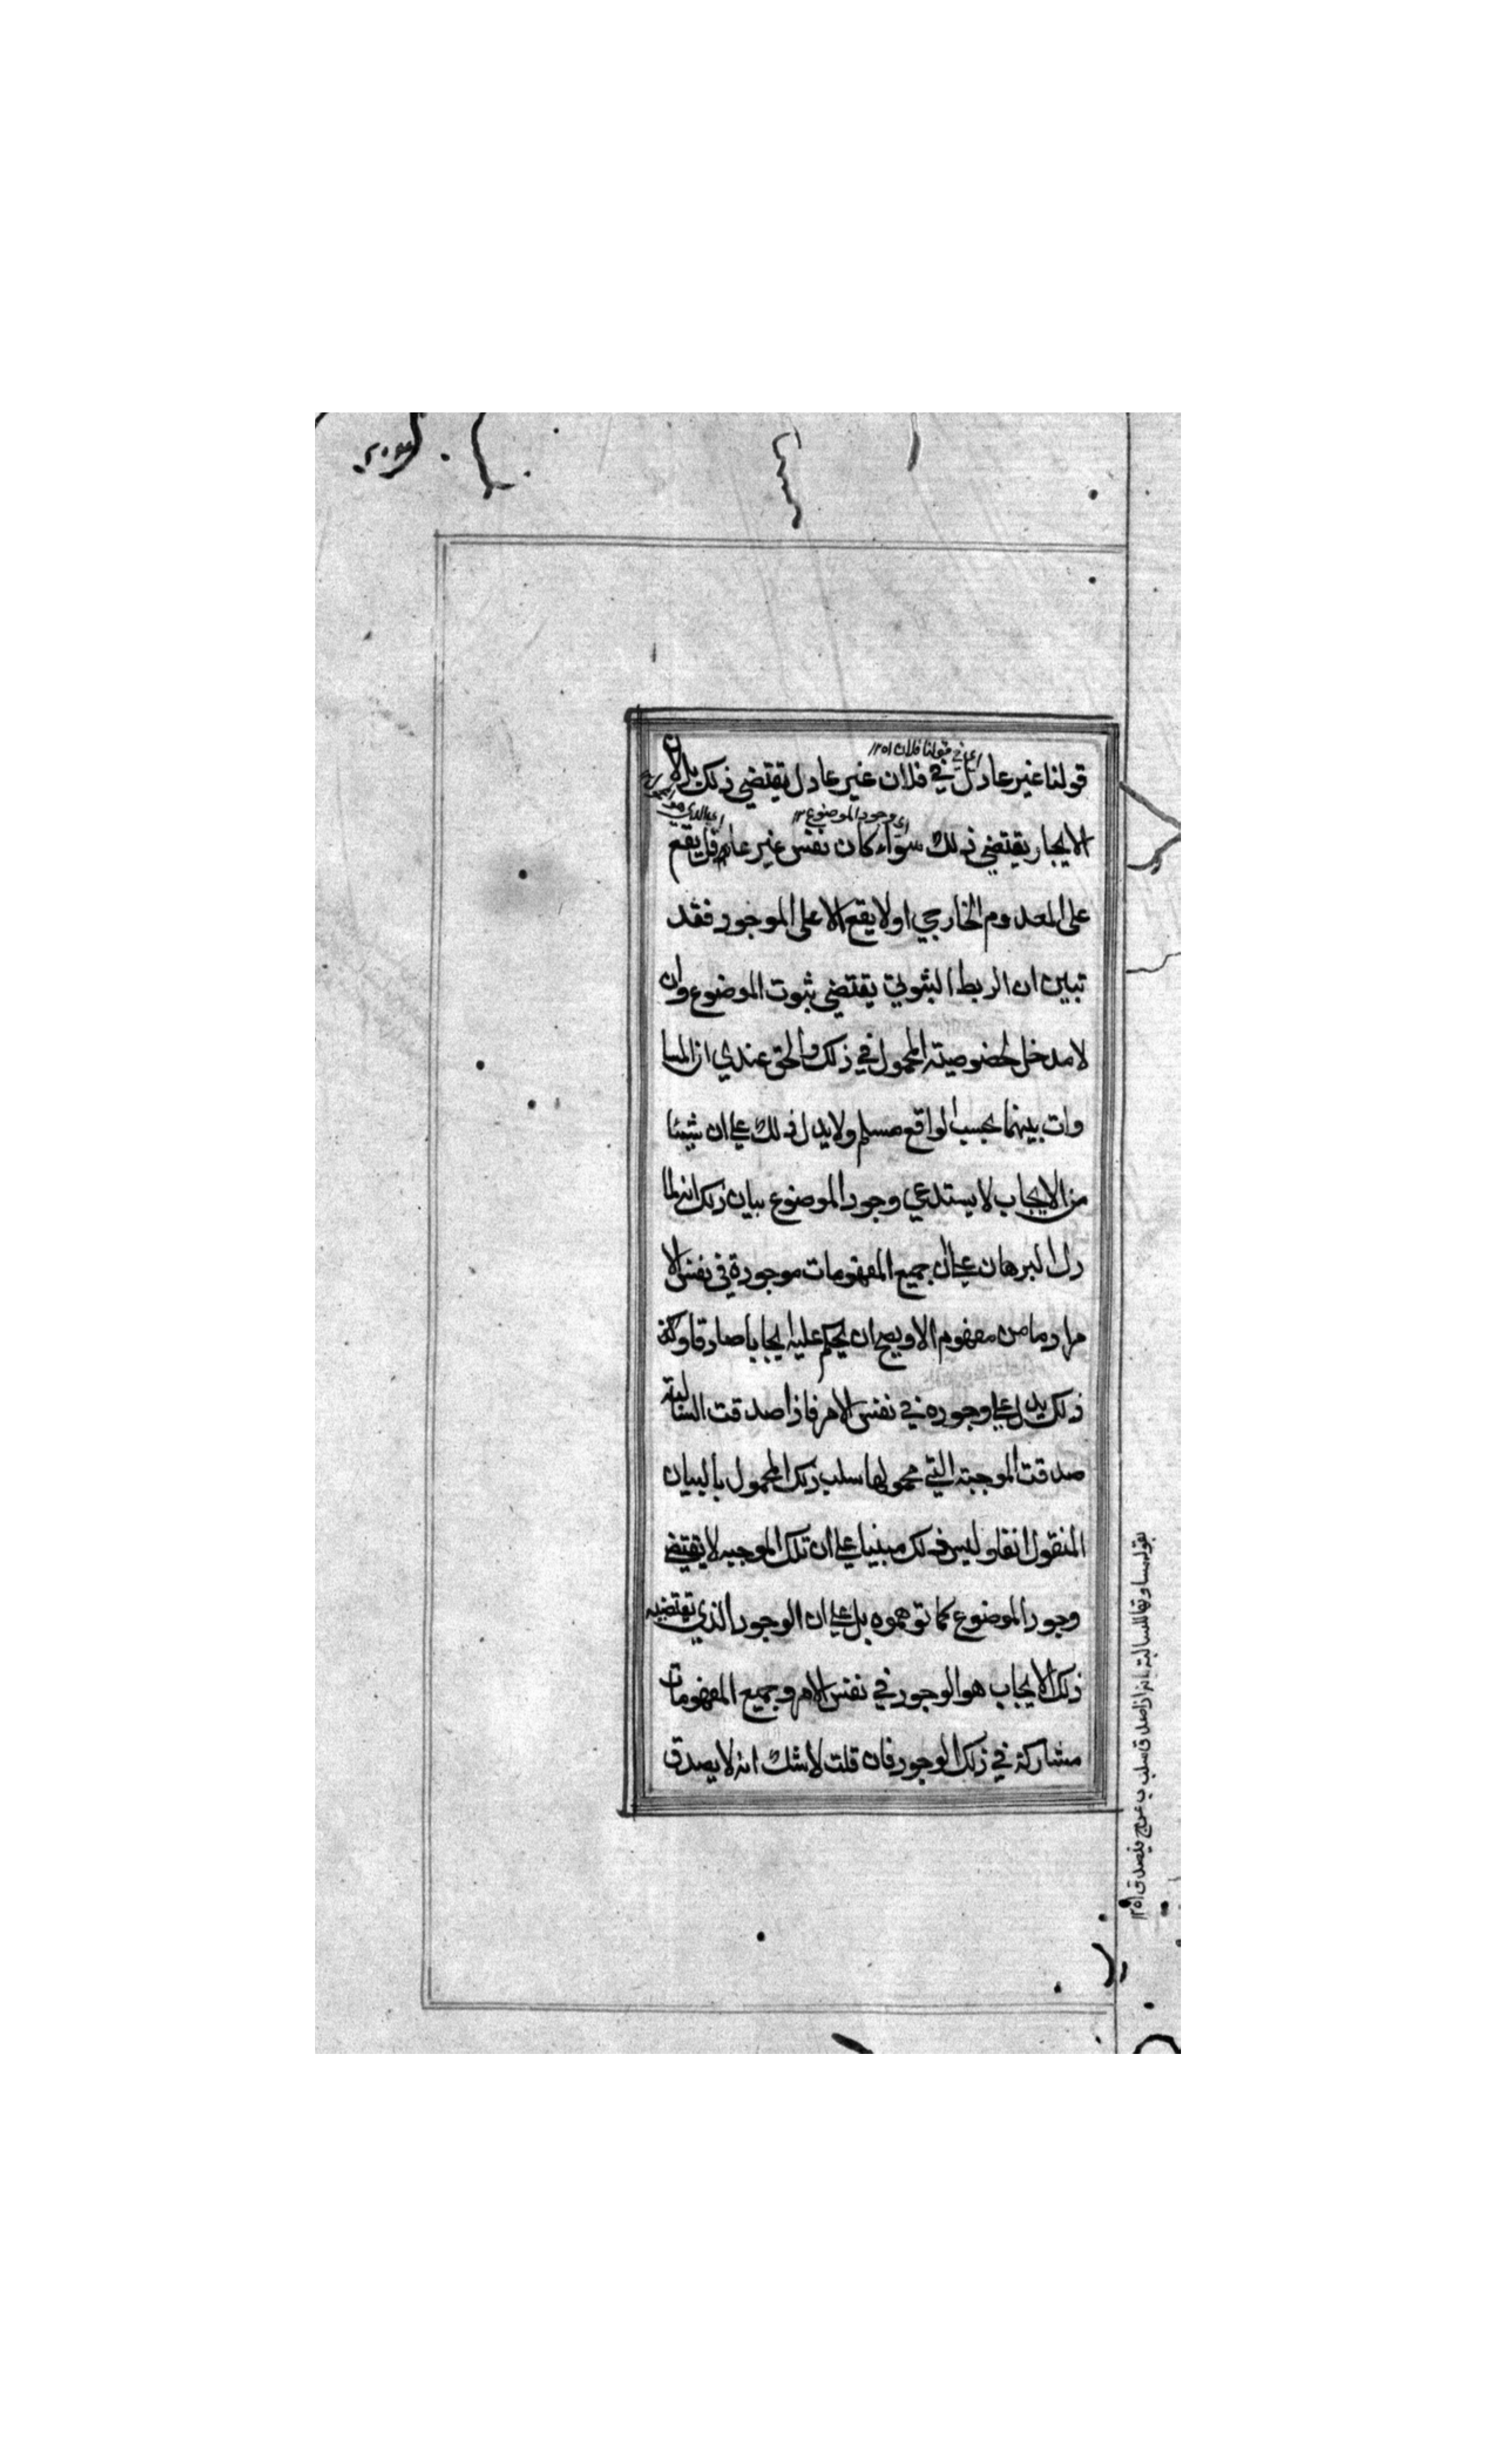 اي في قولنا فلان ١٢٥١
قولنا غير عادل في فلان غير عادل يقتضي ذلك بل لان
اي وجود الموضوع ١٢
الايجاب يقتضي ذلك سواء كان نفس غير عادل يقع
على المعدوم الخارجي او لا يقع الا على الموجود فقد
تبين ان الربط الثبوتي يقتضي ثبوت الموضوع وان
لا مدخل لخصوصية المحمول في ذلك والحق عندي ان المسا
وات بينهما بحسب الواقع مسلم ولا يدل ذلك على ان شيئا
من الايجاب لا يستدعي وجود الموضوع بيان ذلك انه لما
دل البرهان على ان جميع المفهومات موجودة في نفس الا
مر اذ ما من مفهوم الا ويصح ان يحكم عليه ايجابا صادقا وكذ
ذلك يدل على وجوده في نفس الامر فاذا صدقت السالبة
صدقت الموجبة التي محمولها سلب ذلك المحمول بالبيان
المنقول انفا وليس ذلك مبنيا على ان تلك الموجبه لا يقتضي
وجود الموضوع كما توهموه بل على ان الوجود الذي تقتضيه
ذلك الايجاب هو الوجود في نفس الامر وجميع المفهومات
مشاركة في ذلك الوجود فان قلت لا شك انه لا يصدق
بقوله مساوقا للسالبة انه اذا صدق سلب ب عن ج فيصدق ١٢٥١